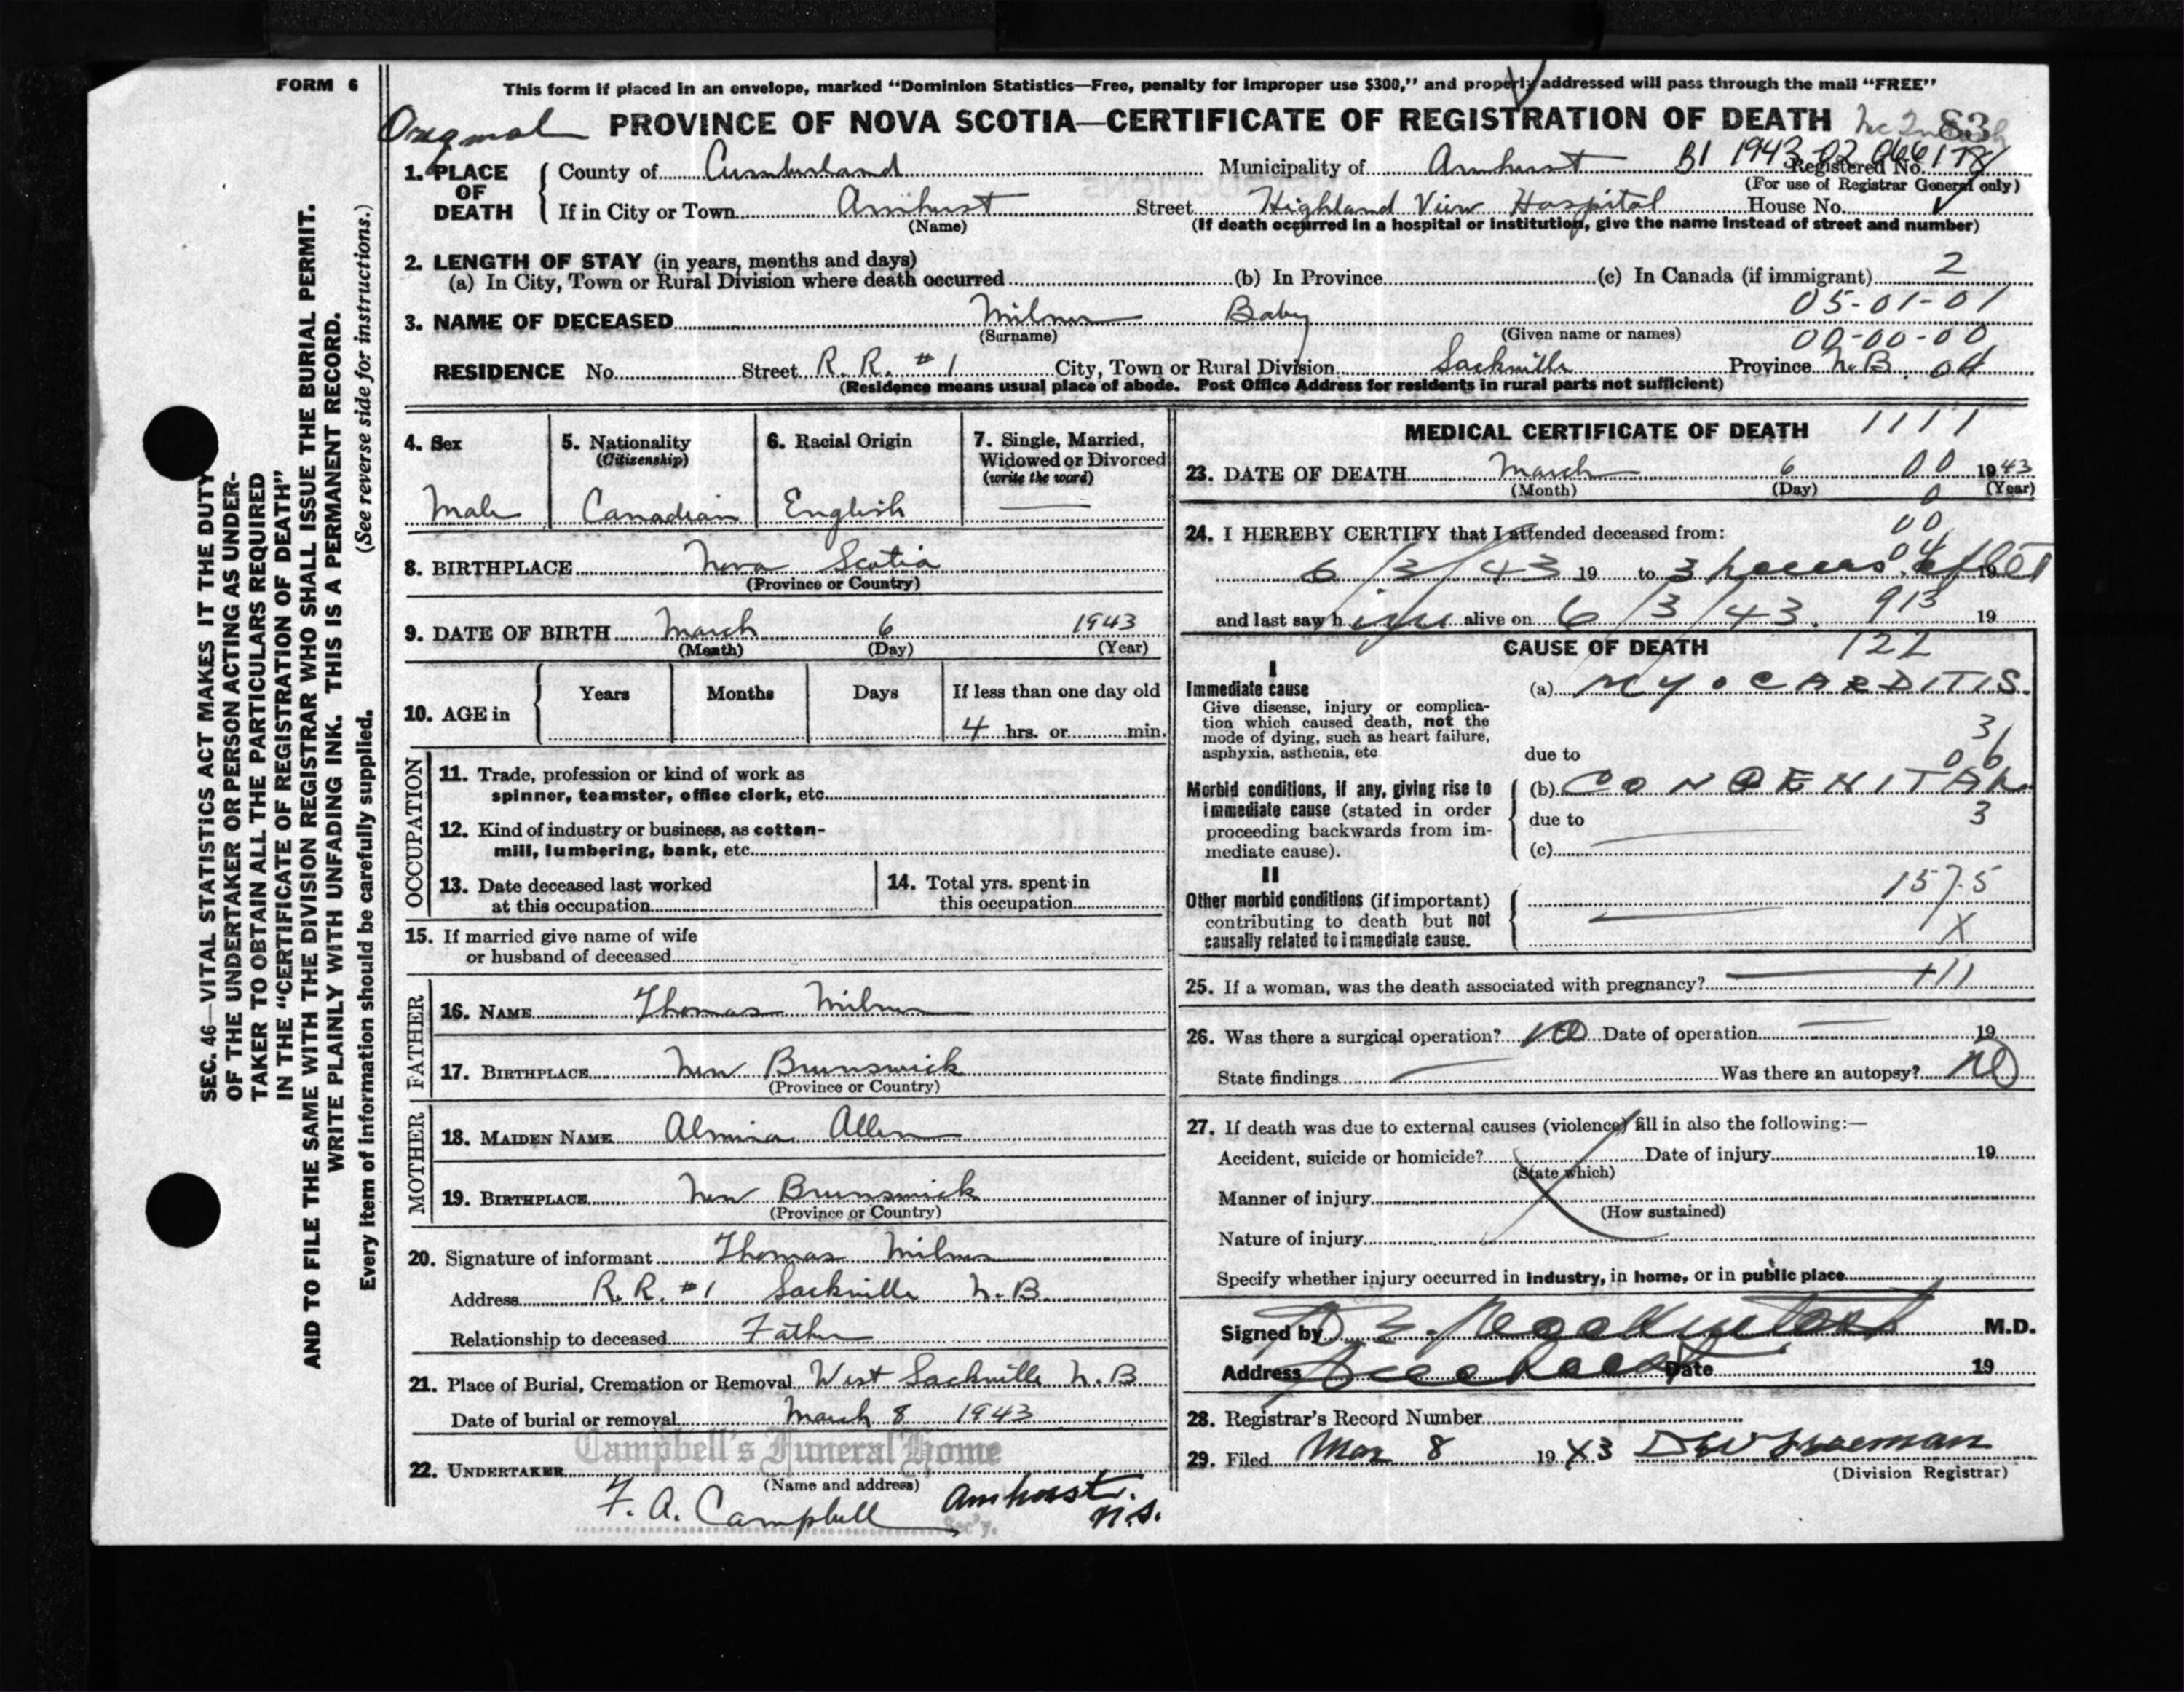 FORM 6
This form if placed in an envelope, marked "Dominion Statistics—Free, penalty for improper use $300," and properly addressed will pass through the mail "FREE"
Original PROVINCE OF NOVA SCOTIA—CERTIFICATE OF REGISTRATION OF DEATH 83
1. PLACE OF DEATH
County of Cumberland Municipality of Amherst B1 1943 02 066178 Registered No.
(For use of Registrar General only)
If in City or Town Amherst Street Highland View Hospital House No.
(Name) (If death occurred in a hospital or institution, give the name instead of street and number)
2. LENGTH OF STAY (in years, months and days)
(a) In City, Town or Rural Division where death occurred (b) In Province (c) In Canada (if immigrant) 2
05-01-01
3. NAME OF DECEASED Milner Baby
(Surname) (Given name or names) 00-00-00
RESIDENCE No. Street R. R. #1 City, Town or Rural Division Sackville Province N.B. 04
(Residence means usual place of abode. Post Office Address for residents in rural parts not sufficient)
4. Sex
Male
5. Nationality
(Citizenship)
Canadian
6. Racial Origin
English
7. Single, Married,
Widowed or Divorced
(write the word)
8. BIRTHPLACE Nova Scotia
(Province or Country)
9. DATE OF BIRTH March 6 1943
(Month) (Day) (Year)
10. AGE in Years Months Days If less than one day old
4 hrs. or min.
OCCUPATION
11. Trade, profession or kind of work as
spinner, teamster, office clerk, etc.
12. Kind of industry or business, as cotton-
mill, lumbering, bank, etc.
13. Date deceased last worked
at this occupation
14. Total yrs. spent in
this occupation
15. If married give name of wife
or husband of deceased
FATHER
16. NAME Thomas Milner
17. BIRTHPLACE New Brunswick
(Province or Country)
MOTHER
18. MAIDEN NAME Almira Allen
19. BIRTHPLACE New Brunswick
(Province or Country)
20. Signature of informant Thomas Milner
Address R. R. #1 Sackville N.B.
Relationship to deceased Father
21. Place of Burial, Cremation or Removal West Sackville N.B
Date of burial or removal March 8 1943
Campbell's Funeral Home
22. UNDERTAKER
(Name and address)
F. A. Campbell Amherst. N.S.
Sec'y.
MEDICAL CERTIFICATE OF DEATH 1111
23. DATE OF DEATH March 6 00 1943
(Month) (Day) (Year)
0
24. I HEREBY CERTIFY that I attended deceased from: 00
04
6/3/43 19 to 3 hours after 19
and last saw him alive on 6/3/43. 913 19
CAUSE OF DEATH 122
I
Immediate cause
Give disease, injury or complica-
tion which caused death, not the
mode of dying, such as heart failure,
asphyxia, asthenia, etc.
(a) MYOCARDITIS.
31
due to
06
Morbid conditions, if any, giving rise to
immediate cause (stated in order
proceeding backwards from im-
mediate cause).
(b) CONGENITAL
due to 3
(c)
II
Other morbid conditions (if important)
contributing to death but not
causally related to immediate cause.
157.5
X
25. If a woman, was the death associated with pregnancy? 111
26. Was there a surgical operation? no Date of operation 19
State findings Was there an autopsy? No
27. If death was due to external causes (violence) fill in also the following:—
Accident, suicide or homicide? Date of injury 19
(State which)
Manner of injury
(How sustained)
Nature of injury
Specify whether injury occurred in industry, in home, or in public place
Signed by M.D.
Address Date 19
28. Registrar's Record Number
29. Filed Mar 8 1943
(Division Registrar)
SEC. 46—VITAL STATISTICS ACT MAKES IT THE DUTY
OF THE UNDERTAKER OR PERSON ACTING AS UNDER-
TAKER TO OBTAIN ALL THE PARTICULARS REQUIRED
IN THE "CERTIFICATE OF REGISTRATION OF DEATH"
AND TO FILE THE SAME WITH THE DIVISION REGISTRAR WHO SHALL ISSUE THE BURIAL PERMIT.
WRITE PLAINLY WITH UNFADING INK. THIS IS A PERMANENT RECORD.
Every item of information should be carefully supplied. (See reverse side for instructions.)